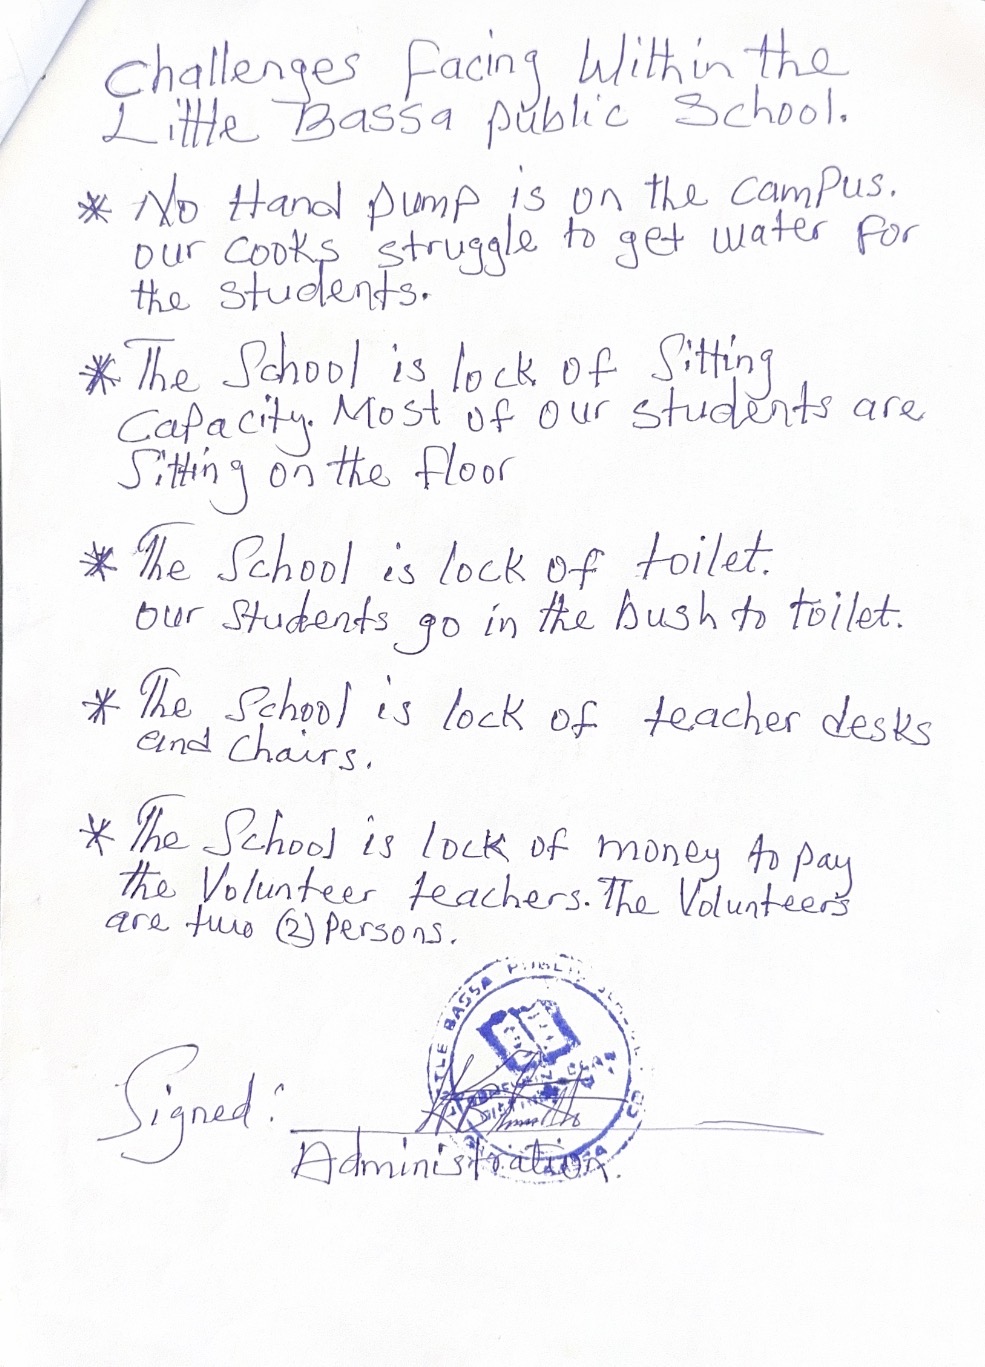 Challenges Facing Within the
Little Bassa public School.
* No Hand pump is on the campus.
our cooks struggle to get water for
the students.
* The School is lock of Sitting
Capacity. Most of our students are
Sitting on the floor
* The School is lock of toilet.
our students go in the bush to toilet.
* The School is lock of teacher desks
and chairs.
* The School is lock of money to pay
the Volunteer teachers. The Volunteers
are two (2) Persons.
BASSA PUBLIC
Signed:
Administration.